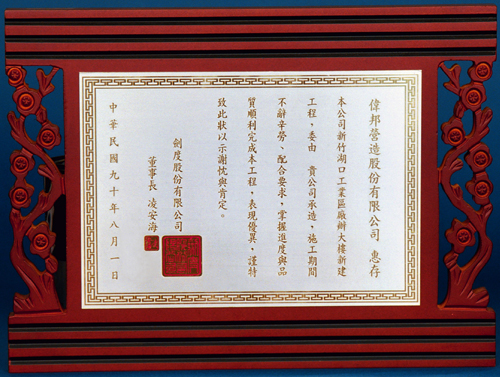 偉邦營造股份有限公司 惠存
本公司新竹湖口工業區廠辦大樓新建
工程，委由 貴公司承造，施工期間
不辭辛勞、配合要求，掌握進度與品
質順利完成本工程，表現優異，謹特
致此狀以示謝忱與肯定。
劍度股份有限公司
董事長 凌安海
中華民國九十年八月一日